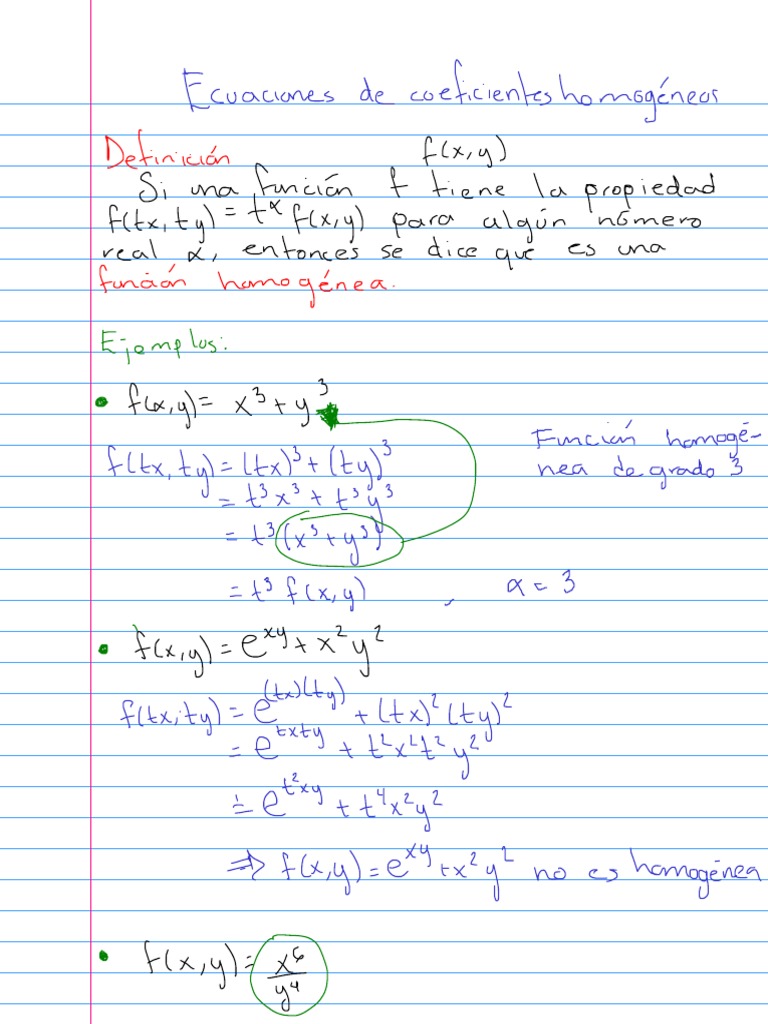 Ecuaciones de coeficientes homogéneos
Definición
f(x,y)
Si una función f tiene la propiedad
f(tx,ty) = t^α f(x,y) para algún número
real α, entonces se dice que es una
función homogénea.
Ejemplos:
• f(x,y) = x³ + y³
Función homogé-
f(tx,ty) = (tx)³ + (ty)³
nea de grado 3
= t³x³ + t³y³
= t³(x³ + y³)
= t³ f(x,y) , α = 3
• f(x,y) = e^{xy} + x²y²
f(tx,ty) = e^{(tx)(ty)} + (tx)²(ty)²
= e^{txty} + t²x²t²y²
= e^{t²xy} + t⁴x²y²
⇒ f(x,y) = e^{xy} + x²y² no es homogénea
• f(x,y) = x⁶/y⁴